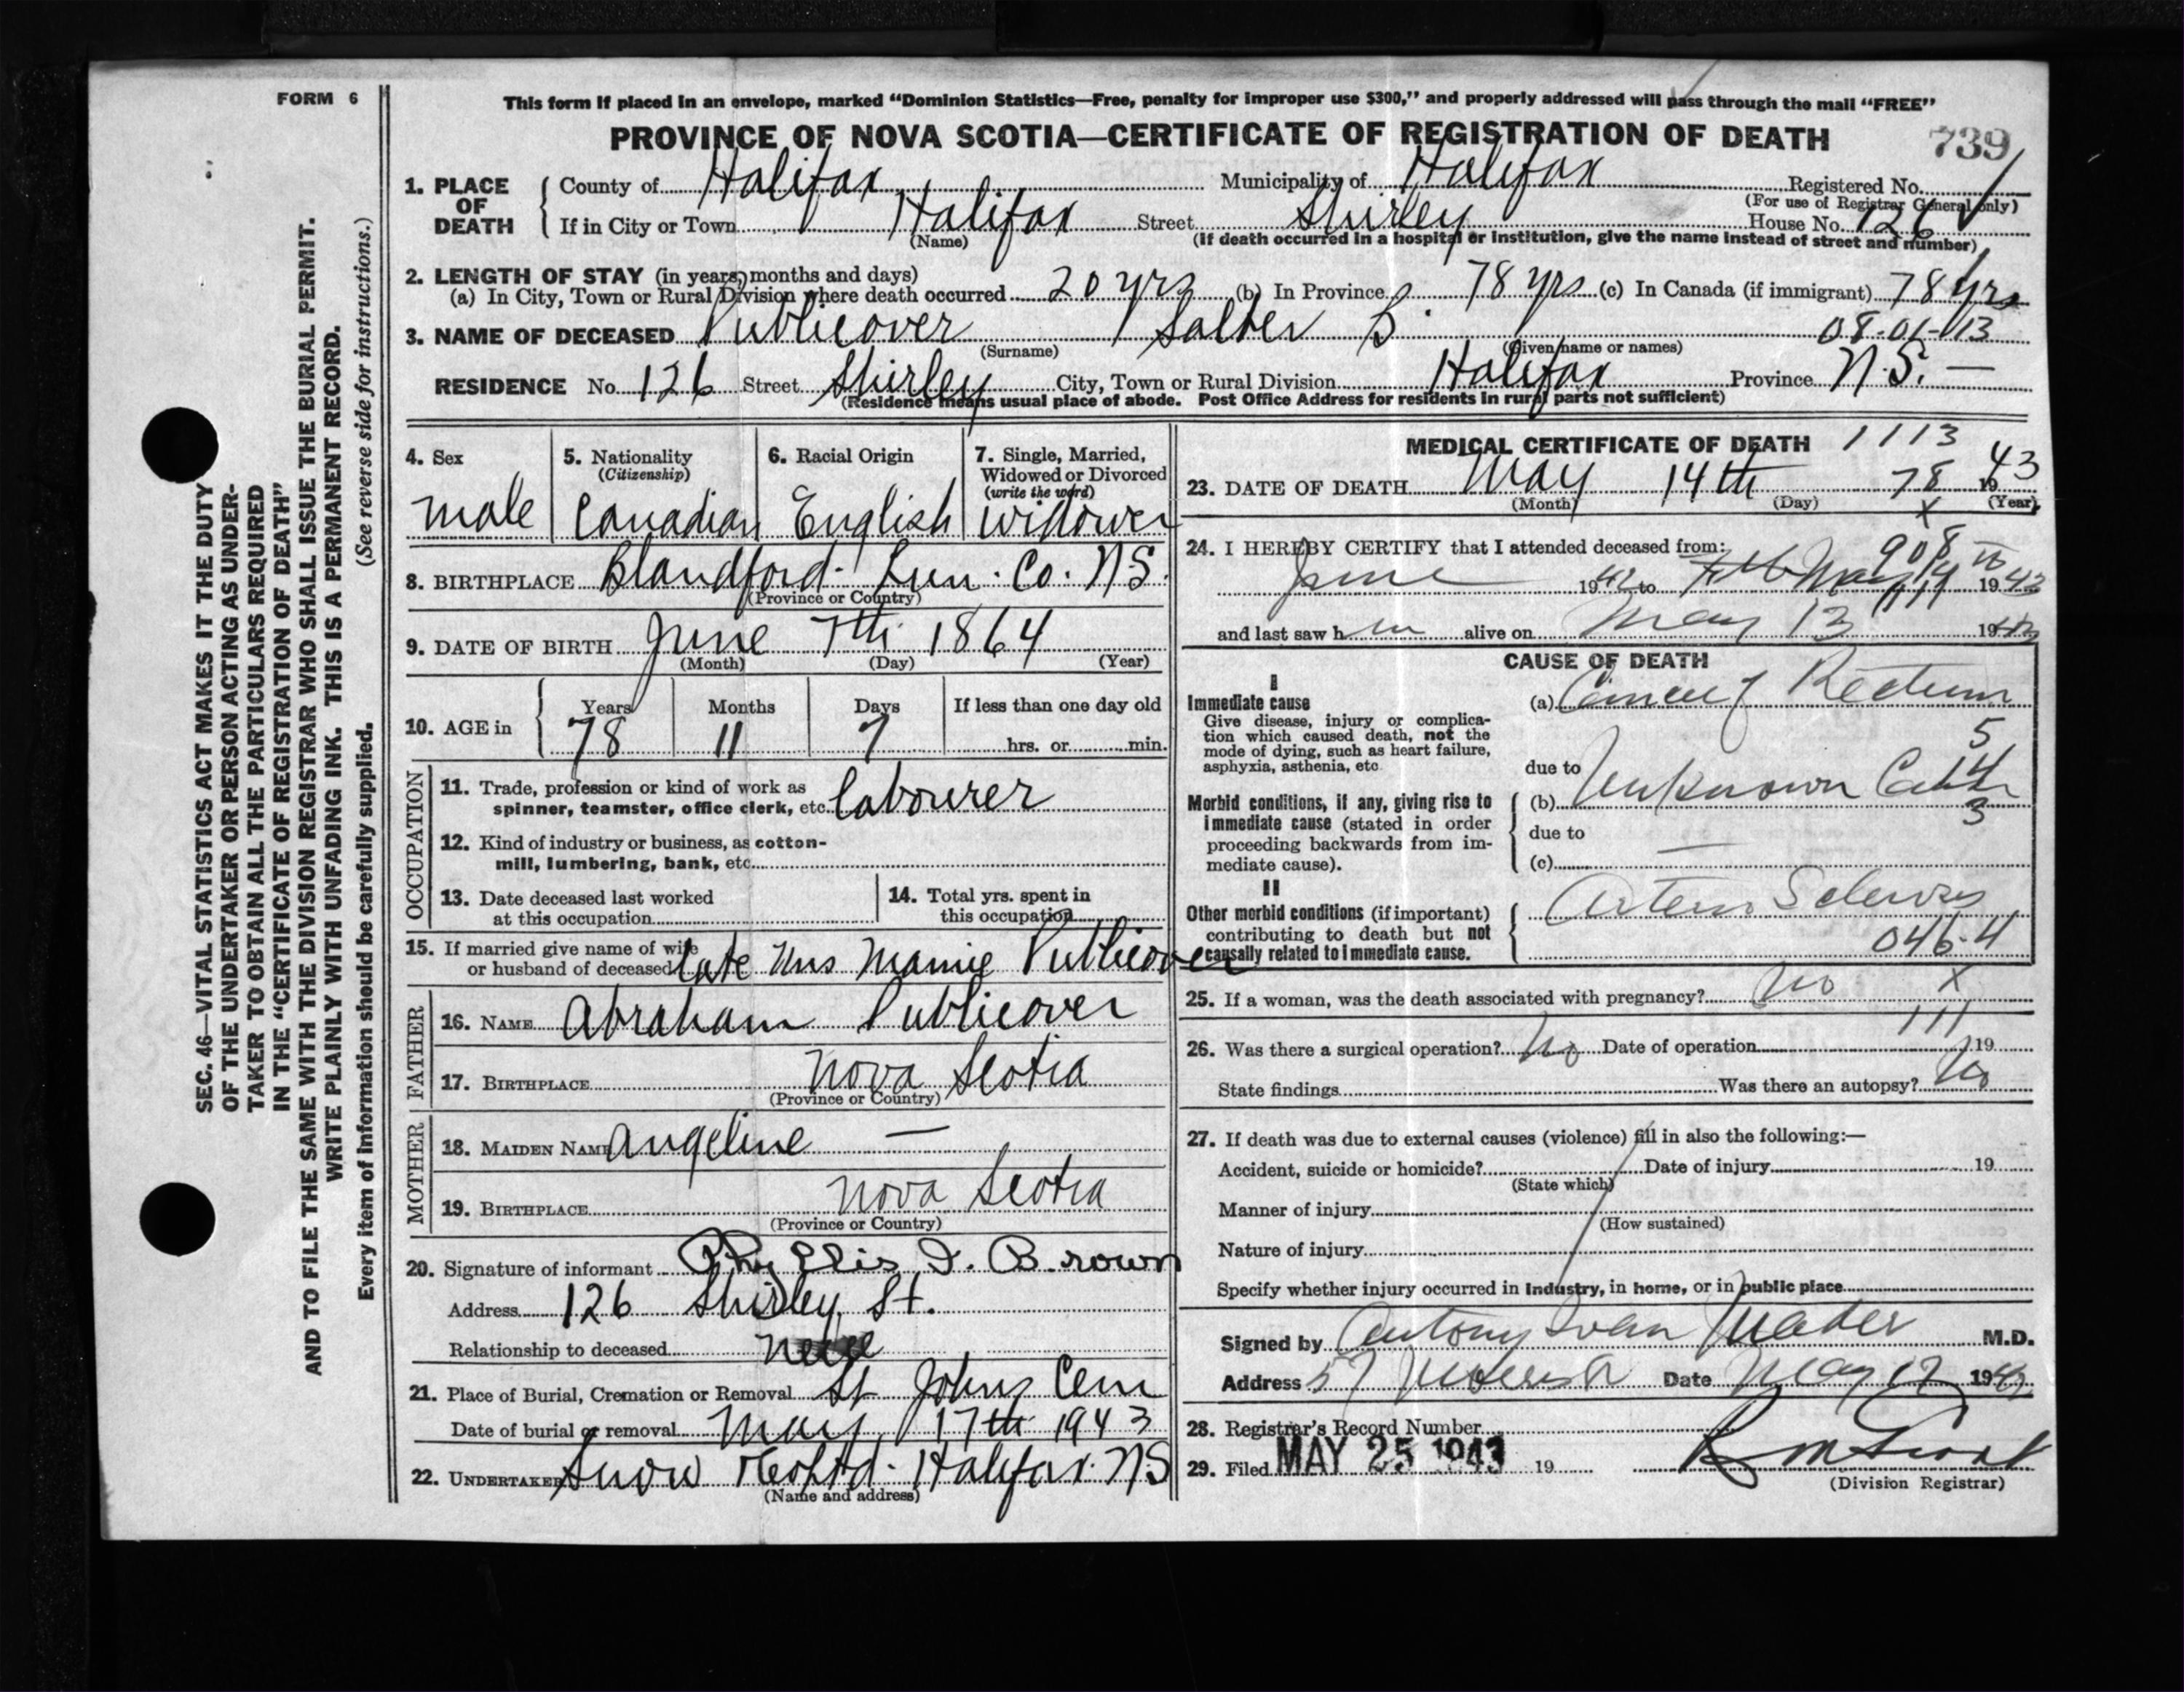 FORM 6
This form if placed in an envelope, marked "Dominion Statistics—Free, penalty for improper use $300," and properly addressed will pass through the mail "FREE"
PROVINCE OF NOVA SCOTIA—CERTIFICATE OF REGISTRATION OF DEATH
739
1. PLACE OF DEATH
County of Halifax Municipality of Halifax Registered No.
(For use of Registrar General only)
If in City or Town Halifax Street Shirley House No. 126
(Name) (If death occurred in a hospital or institution, give the name instead of street and number)
2. LENGTH OF STAY (in years, months and days)
(a) In City, Town or Rural Division where death occurred 20 yrs (b) In Province 78 yrs (c) In Canada (if immigrant) 78 yrs
3. NAME OF DECEASED Publicover Salter B. 08-01-13
(Surname) (Given name or names)
RESIDENCE No. 126 Street Shirley City, Town or Rural Division Halifax Province N.S. —
(Residence means usual place of abode. Post Office Address for residents in rural parts not sufficient)
4. Sex
male
5. Nationality
(Citizenship)
Canadian
6. Racial Origin
English
7. Single, Married,
Widowed or Divorced
(write the word)
Widower
8. BIRTHPLACE Blandford. Lun. Co. NS.
(Province or Country)
9. DATE OF BIRTH June 7th 1864
(Month) (Day) (Year)
10. AGE in
Years Months Days If less than one day old
78 11 7 hrs. or min.
OCCUPATION
11. Trade, profession or kind of work as
spinner, teamster, office clerk, etc. labourer
12. Kind of industry or business, as cotton-
mill, lumbering, bank, etc.
13. Date deceased last worked
at this occupation
14. Total yrs. spent in
this occupation
15. If married give name of wife
or husband of deceased late Mrs Mamie Publicover
FATHER
16. NAME Abraham Publicover
17. BIRTHPLACE Nova Scotia
(Province or Country)
MOTHER
18. MAIDEN NAME Angeline —
19. BIRTHPLACE Nova Scotia
(Province or Country)
20. Signature of informant Phyllis I. Brown
Address 126 Shirley St.
Relationship to deceased
21. Place of Burial, Cremation or Removal St Johns Cem
Date of burial or removal May 17th 1943
22. UNDERTAKER Snow Halifax. NS
(Name and address)
MEDICAL CERTIFICATE OF DEATH 1113
23. DATE OF DEATH May 14th 78 1943
(Month) (Day) (Year)
x
24. I HEREBY CERTIFY that I attended deceased from:
908
June 1942 to May 14 1943
and last saw h im alive on May 13 1943
CAUSE OF DEATH
I
Immediate cause
Give disease, injury or complica-
tion which caused death, not the
mode of dying, such as heart failure,
asphyxia, asthenia, etc.
(a) Cancer of Rectum
5
due to
4
Morbid conditions, if any, giving rise to
immediate cause (stated in order
proceeding backwards from im-
mediate cause).
(b) Unknown
3
due to
(c) —
II
Other morbid conditions (if important)
contributing to death but not
causally related to immediate cause.
Arterio Sclerosis
046.4
25. If a woman, was the death associated with pregnancy? No x
111
26. Was there a surgical operation? No Date of operation 19
State findings Was there an autopsy? No
27. If death was due to external causes (violence) fill in also the following:—
Accident, suicide or homicide? Date of injury 19
(State which)
Manner of injury
(How sustained)
Nature of injury
Specify whether injury occurred in industry, in home, or in public place
Signed by Antony Ivan Mader M.D.
Address 57 Date May 17 1943
28. Registrar's Record Number
29. Filed MAY 25 1943 19
(Division Registrar)
SEC. 46—VITAL STATISTICS ACT MAKES IT THE DUTY
OF THE UNDERTAKER OR PERSON ACTING AS UNDER-
TAKER TO OBTAIN ALL THE PARTICULARS REQUIRED
IN THE "CERTIFICATE OF REGISTRATION OF DEATH"
AND TO FILE THE SAME WITH THE DIVISION REGISTRAR WHO SHALL ISSUE THE BURIAL PERMIT.
WRITE PLAINLY WITH UNFADING INK. THIS IS A PERMANENT RECORD.
Every item of information should be carefully supplied. (See reverse side for instructions.)